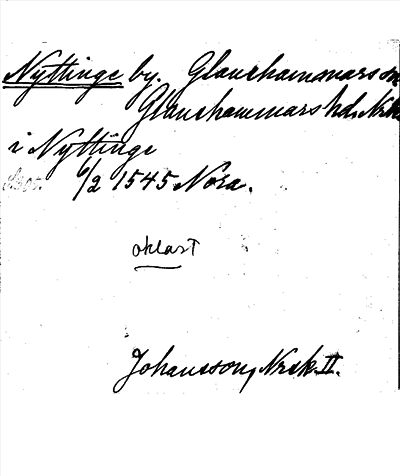 Nyttinge by. Glanshammars sn
Glanshammars hd, Nrk
i Nyttinge
6/2 1545 Nora.
oklart
Johansson, Nrsk. II.